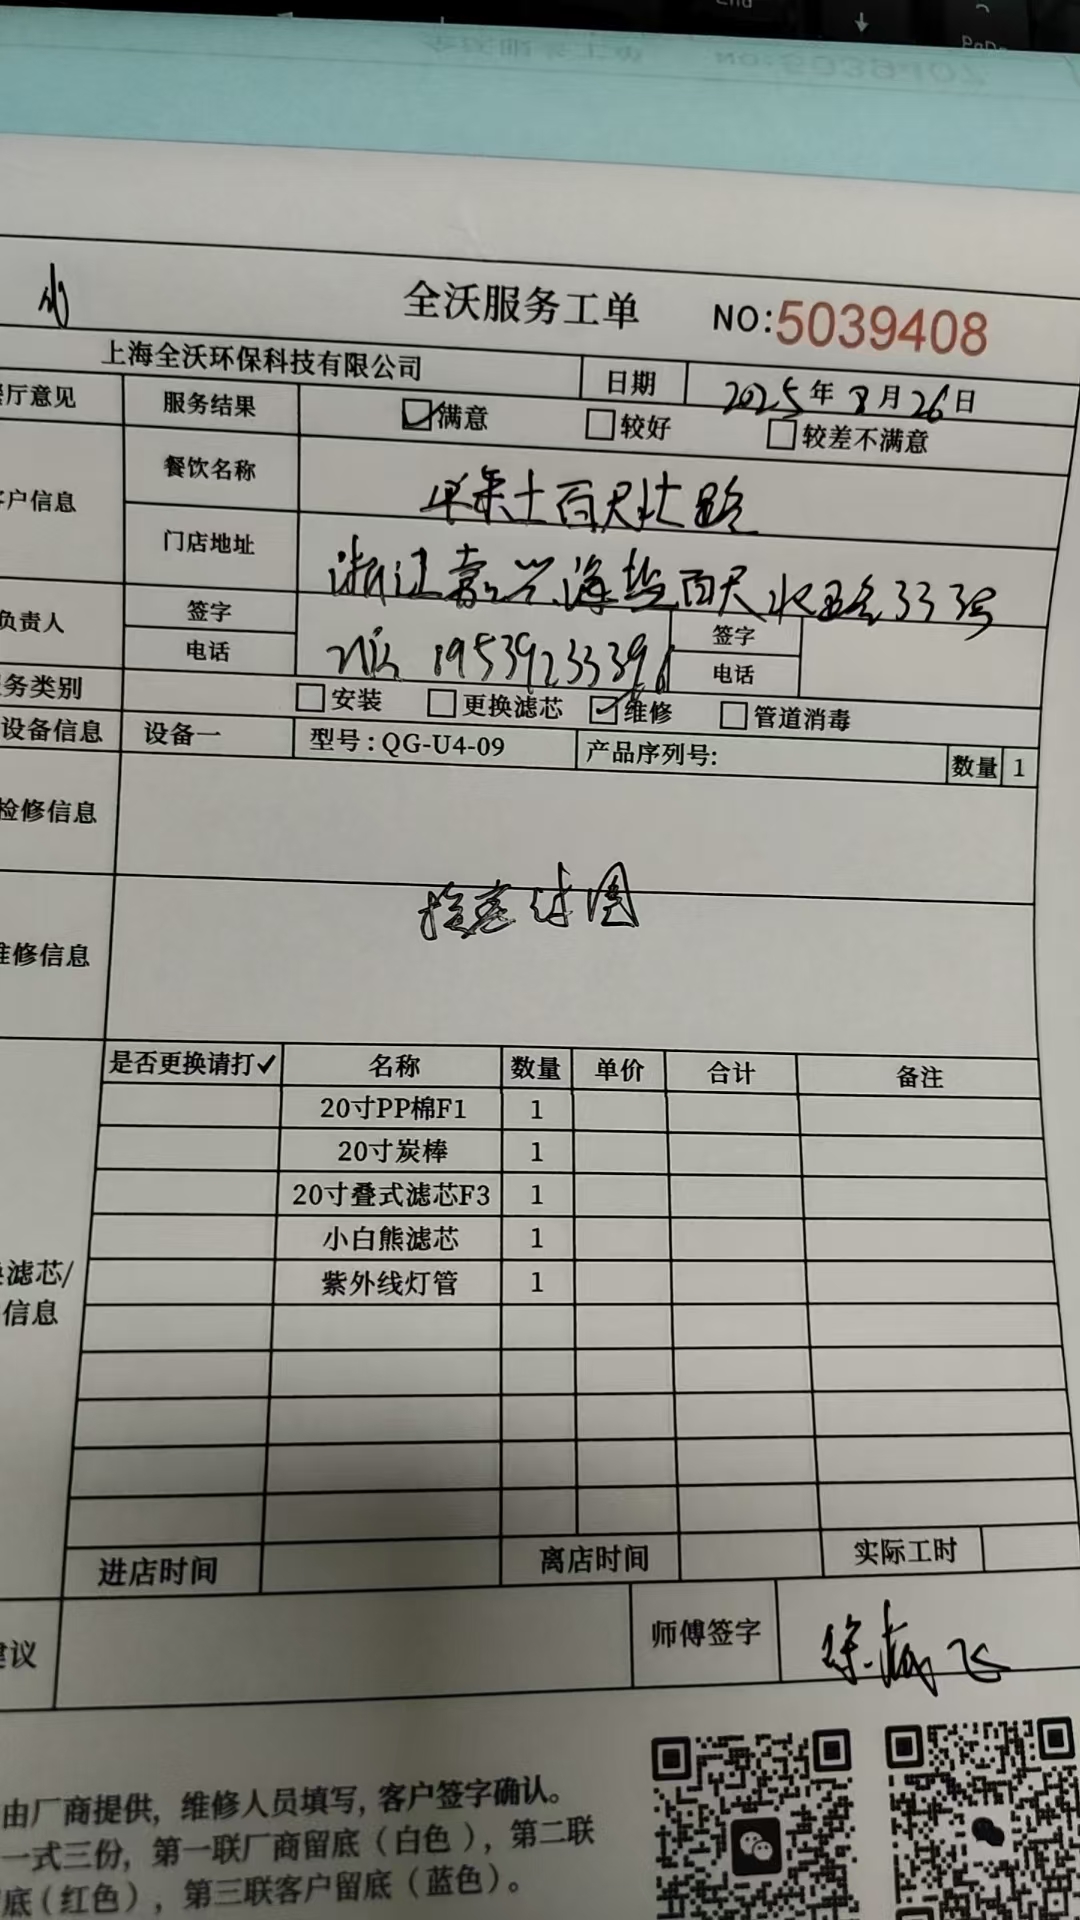 全沃服务工单 NO:5039408
上海全沃环保科技有限公司 日期 2025年8月26日
厅意见 服务结果 满意 较好 较差不满意
户信息 餐饮名称 百尺北路
门店地址 浙江嘉兴海盐百尺北路333号
负责人 签字 签字
电话 19539233396 电话
务类别 安装 更换滤芯 维修 管道消毒
设备信息 设备一 型号:QG-U4-09 产品序列号: 数量 1
检修信息
维修信息
是否更换请打✓ 名称 数量 单价 合计 备注
20寸PP棉F1 1
20寸炭棒 1
20寸叠式滤芯F3 1
小白熊滤芯 1
紫外线灯管 1
滤芯/
信息
进店时间 离店时间 实际工时
建议 师傅签字
由厂商提供, 维修人员填写, 客户签字确认。
一式三份, 第一联厂商留底(白色), 第二联
底(红色), 第三联客户留底(蓝色)。